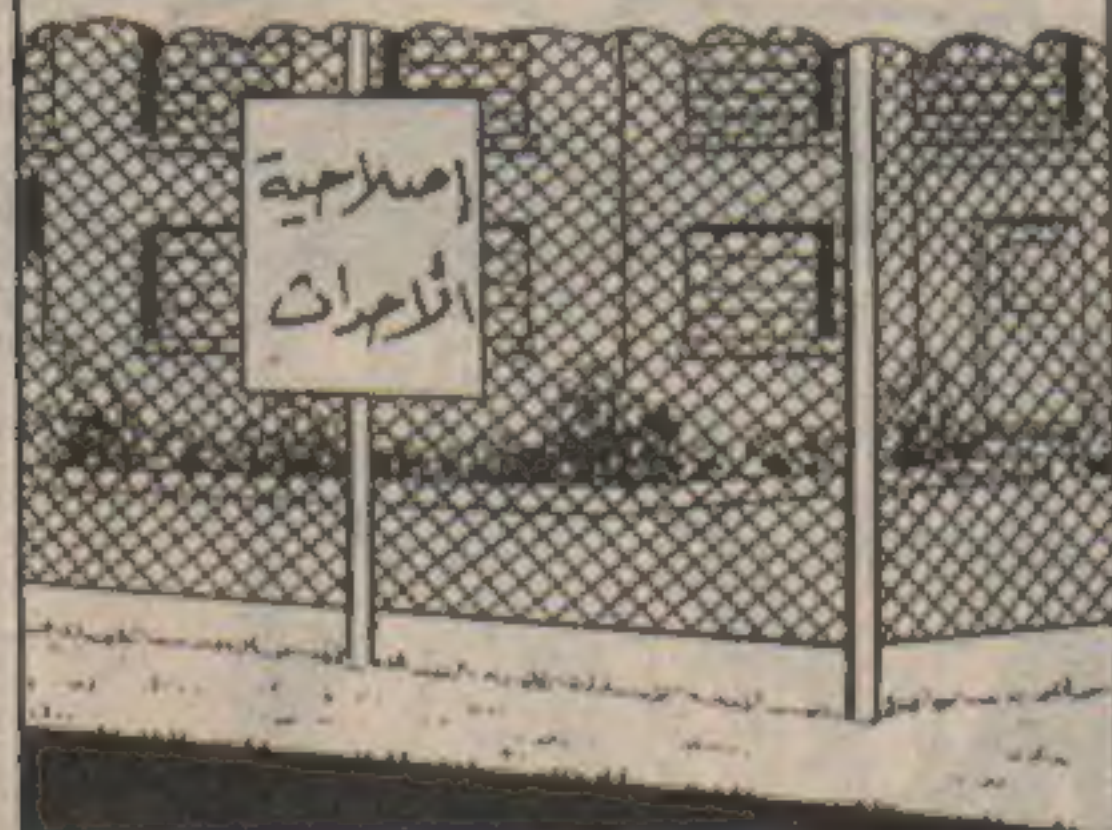 إصلاحية
الأحداث